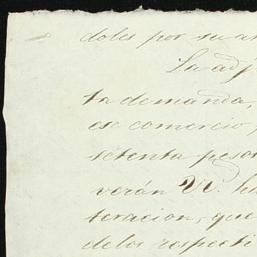 doles por su an
La adj
ta demanda,
ese comercio,
setenta pesos
verán VV. ha
teracion, que
de los respecti